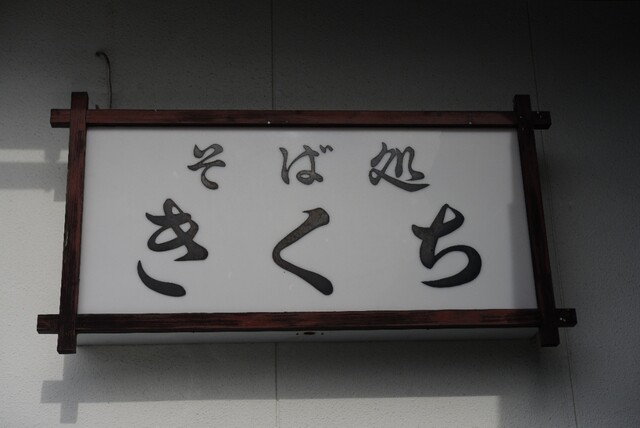 そば処
きくち